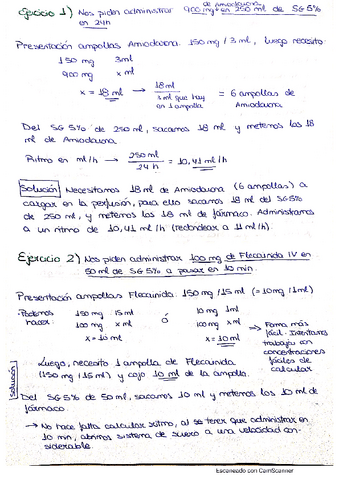 Ejercicio 1) Nos piden administrar 900 mg de amiodarona en 250 ml de SG 5%
en 24h
Presentación ampollas Amiodarona: 150 mg / 3 ml, luego necesito:
150 mg 3 ml
900 mg x ml
x = 18 ml → 18 ml / 3 ml que hay en 1 ampolla = 6 ampollas de Amiodarona
Del SG 5% de 250 ml, sacamos 18 ml y metemos los 18
ml de Amiodarona.
Ritmo en ml/h → 250 ml / 24 h = 10,41 ml/h
Solución Necesitamos 18 ml de Amiodarona (6 ampollas) a
cargar en la perfusión, para ello sacamos 18 ml del SG 5%
de 250 ml, y metemos los 18 ml de fármaco. Administramos
a un ritmo de 10,41 ml/h (redondear a 11 ml/h).
Ejercicio 2) Nos piden administrar 100 mg de Flecainida IV en
50 ml de SG 5% a pasar en 10 min.
Presentación ampollas Flecainida: 150 mg / 15 ml (= 10 mg / 1 ml)
Podemos hacer: 150 mg 15 ml ó 10 mg 1 ml
100 mg x ml 100 mg x ml
x = 10 ml x = 10 ml
→ Forma más
fácil. Intentamos
trabajar con
concentraciones
fáciles de
calcular
Solución
Luego, necesito 1 ampolla de Flecainida
(150 mg / 15 ml) y cojo 10 ml de la ampolla.
Del SG 5% de 50 ml, sacamos 10 ml y metemos los 10 ml de
fármaco.
→ No hace falta calcular ritmo, al se tener que administrar en
10 min, abrimos sistema de suero a una velocidad con-
siderable.
Escaneado con CamScanner